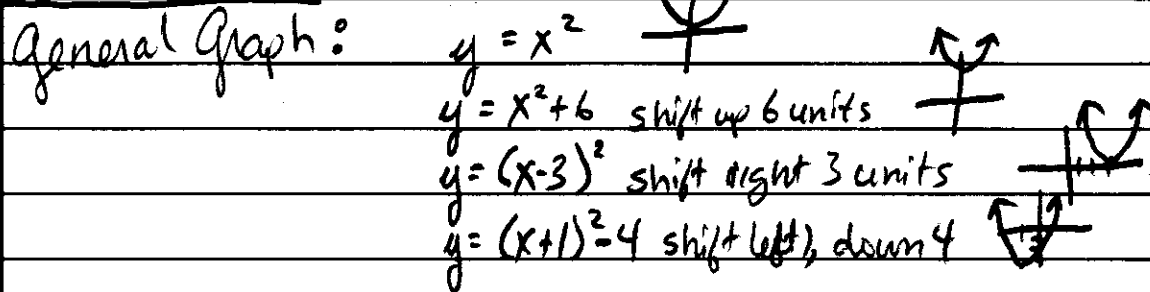 General Graph: y = x²
y = x²+6 shift up 6 units
y = (x-3)² shift right 3 units
y = (x+1)²-4 shift left 1, down 4